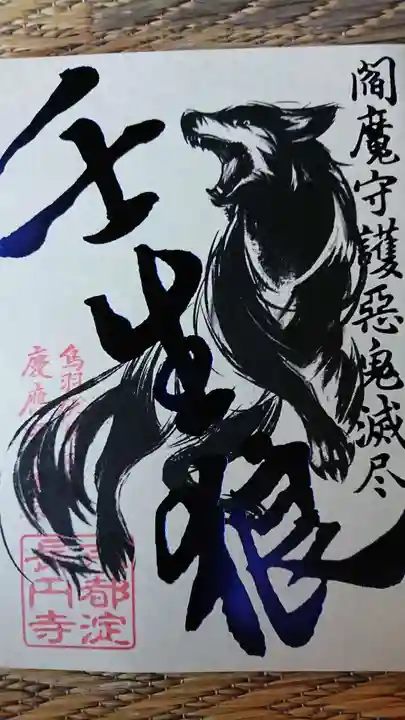 閻魔守護悪鬼滅尽
壬生狼
鳥羽
慶應
京都淀
長円寺